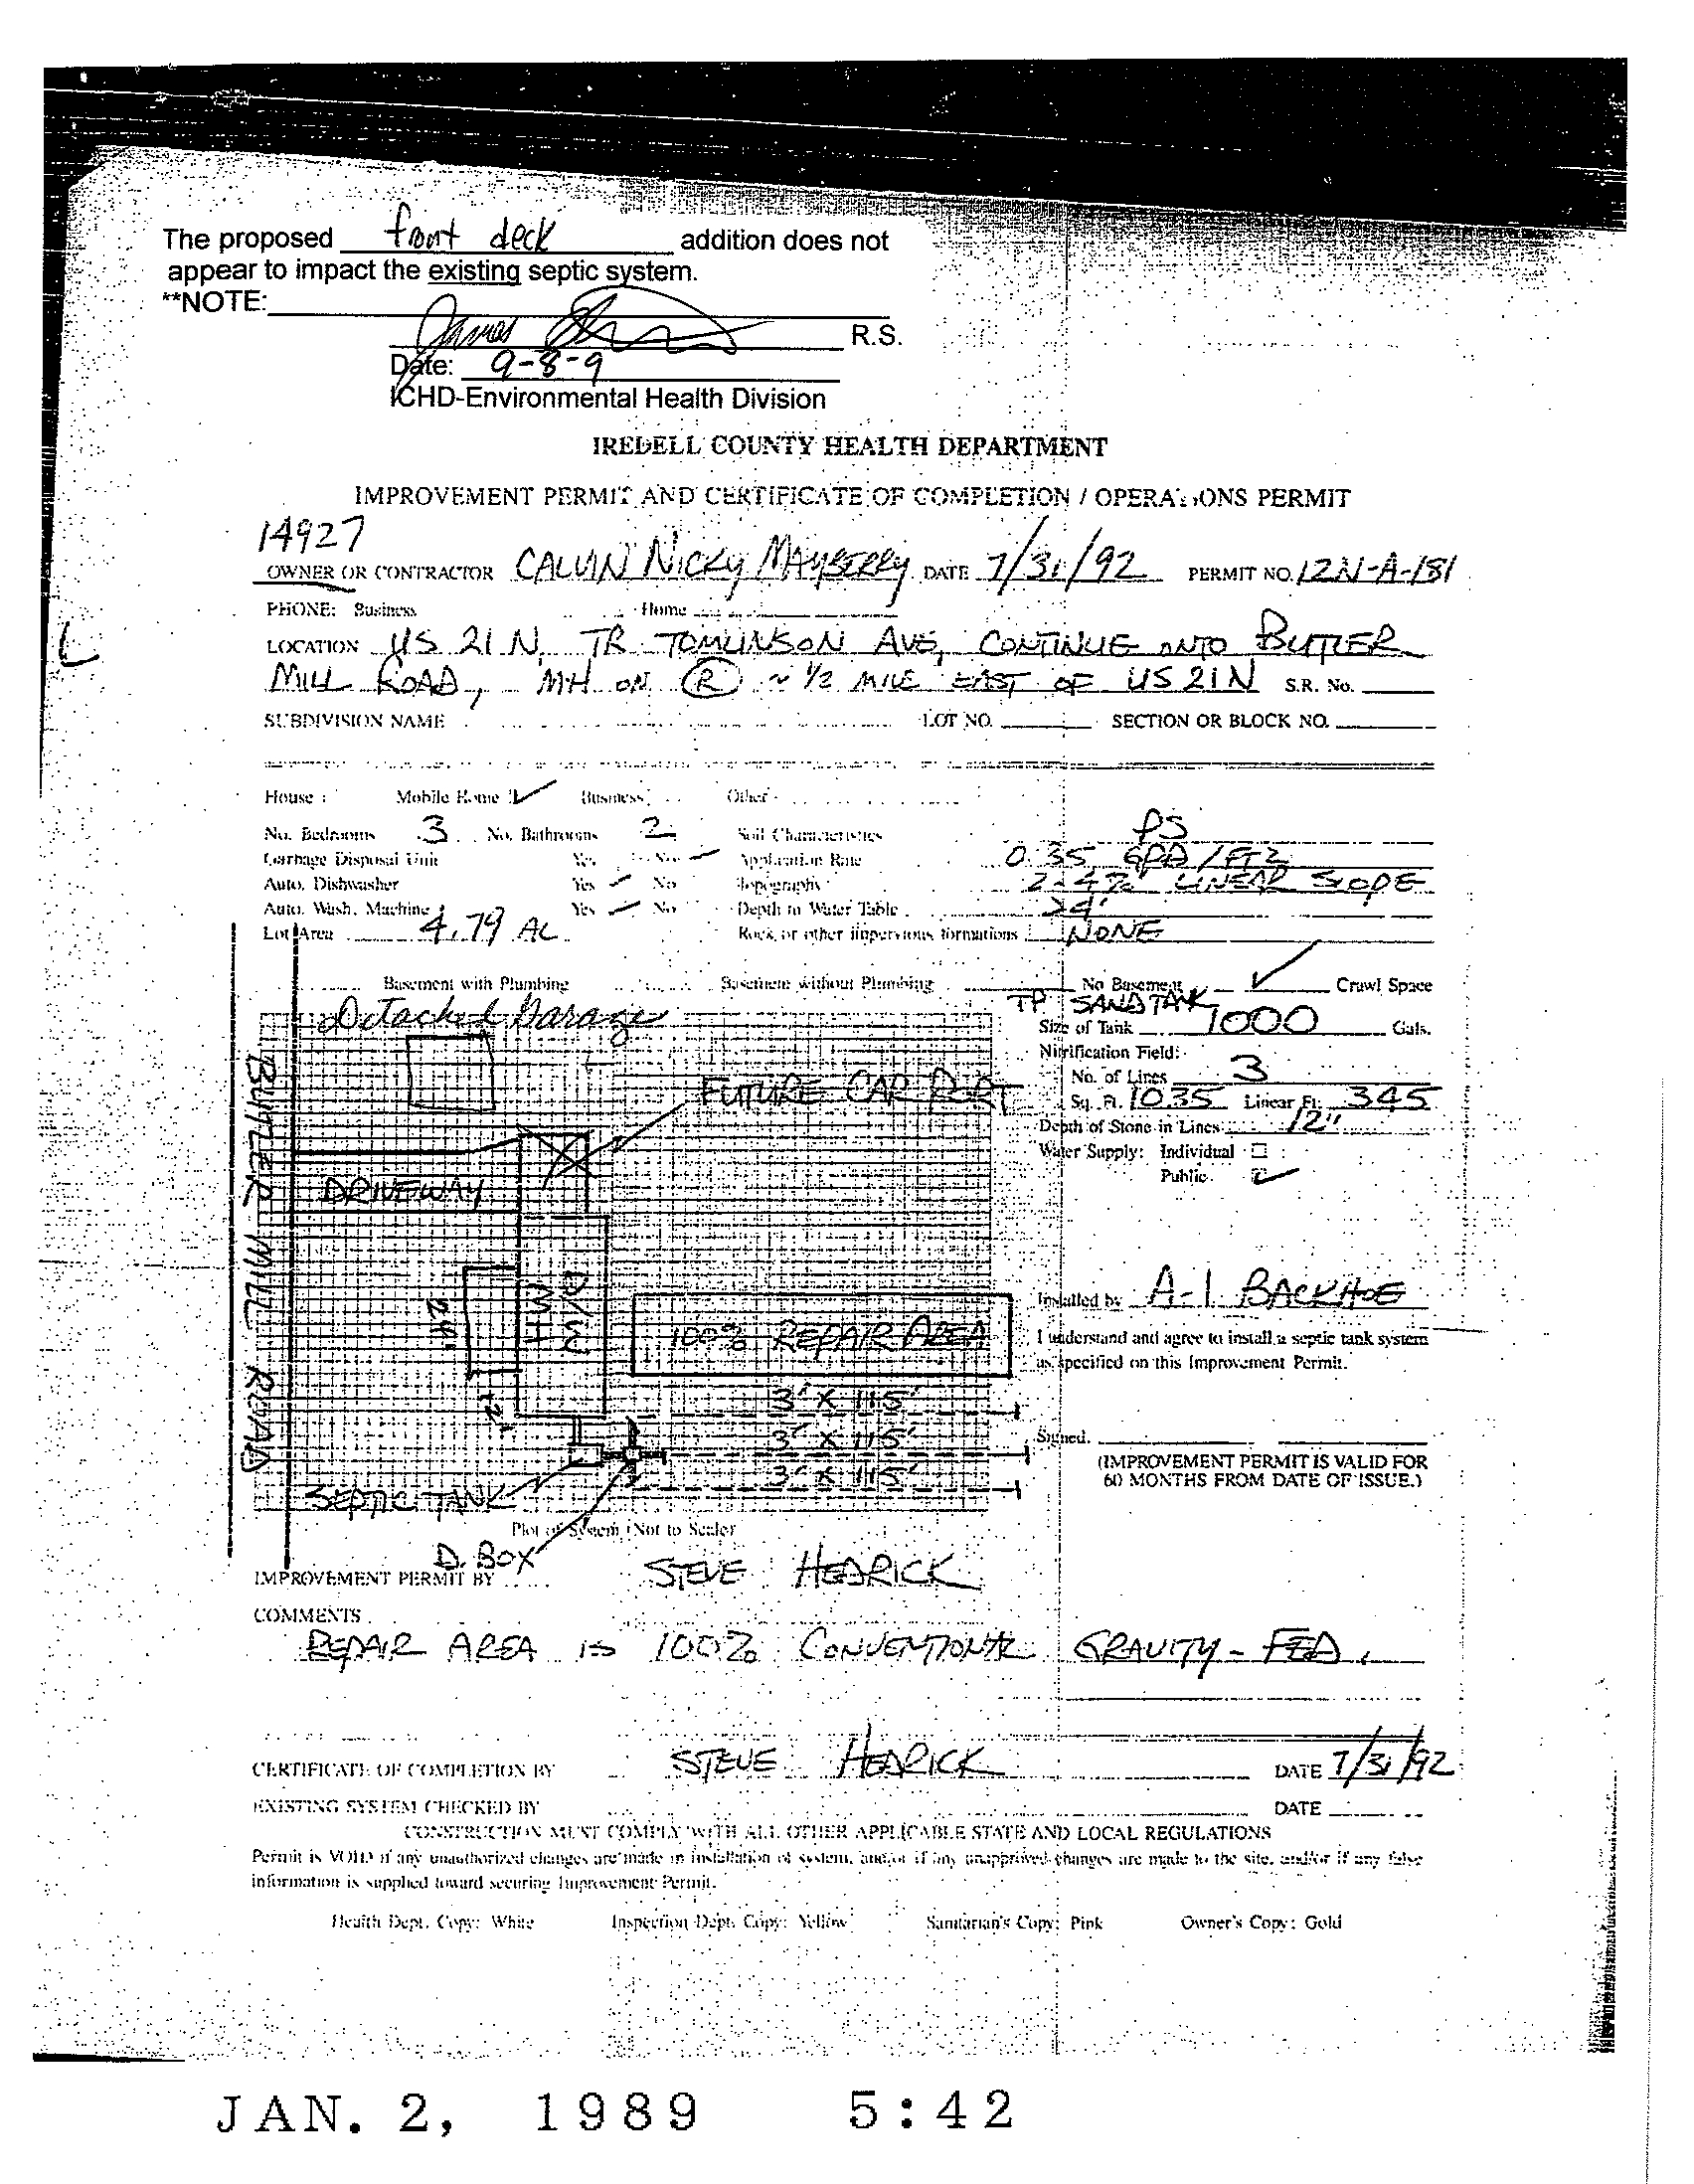 The proposed front deck addition does not
appear to impact the existing septic system.
**NOTE:
James R.S.
Date: 9-8-9
ICHD-Environmental Health Division
IREDELL COUNTY HEALTH DEPARTMENT
IMPROVEMENT PERMIT AND CERTIFICATE OF COMPLETION / OPERATIONS PERMIT
14927
OWNER OR CONTRACTOR CALVIN NICKY MAYBERRY DATE 7/31/92 PERMIT NO. 12N-A-181
PHONE: Business Home
LOCATION US 21 N, TR TOMLINSON AVE, CONTINUE ONTO BUTLER
MILL ROAD, MH ON R ~ 1/2 MILE EAST OF US 21 N S.R. No.
SUBDIVISION NAME LOT NO. SECTION OR BLOCK NO.
House Mobile Home ✓ Business Other
No. Bedrooms 3 No. Bathrooms 2 Soil Characteristics PS
Garbage Disposal Unit Yes No ✓ Application Rate 0.35 GPD/FT2
Auto. Dishwasher Yes ✓ No Topography 2-4% LINEAR SLOPE
Auto. Wash. Machine Yes ✓ No Depth to Water Table >4'
Lot Area 4.79 AC Rock or other impervious formations NONE
Basement with Plumbing Basement without Plumbing No Basement ✓ Crawl Space
TP SAND TANK
Detached Garage
Size of Tank 1000 Gals.
Nitrification Field:
No. of Lines 3
FUTURE CAR PORT
Sq. Ft. 1035 Linear Ft. 345
Depth of Stone in Lines 12"
Water Supply: Individual
Public ✓
DRIVEWAY
BUTLER MILL ROAD
D/W MH
24'
12'
Installed by A-1 BACKHOE
100% REPAIR AREA
I understand and agree to install a septic tank system
as specified on this Improvement Permit.
3' X 115'
3' X 115'
3' X 115'
Signed.
(IMPROVEMENT PERMIT IS VALID FOR
60 MONTHS FROM DATE OF ISSUE.)
SEPTIC TANK
Plot of System (Not to Scale)
D. BOX
IMPROVEMENT PERMIT BY STEVE HEDRICK
COMMENTS
REPAIR AREA IS 100% CONVENTIONAL GRAVITY-FED.
CERTIFICATE OF COMPLETION BY STEVE HEDRICK DATE 7/31/92
EXISTING SYSTEM CHECKED BY DATE
CONSTRUCTION MUST COMPLY WITH ALL OTHER APPLICABLE STATE AND LOCAL REGULATIONS
Permit is VOID if any unauthorized changes are made in installation of system, and/or if any unapproved changes are made to the site, and/or if any false
information is supplied toward securing Improvement Permit.
Health Dept. Copy: White Inspection Dept. Copy: Yellow Sanitarian's Copy: Pink Owner's Copy: Gold
JAN. 2, 1989 5:42